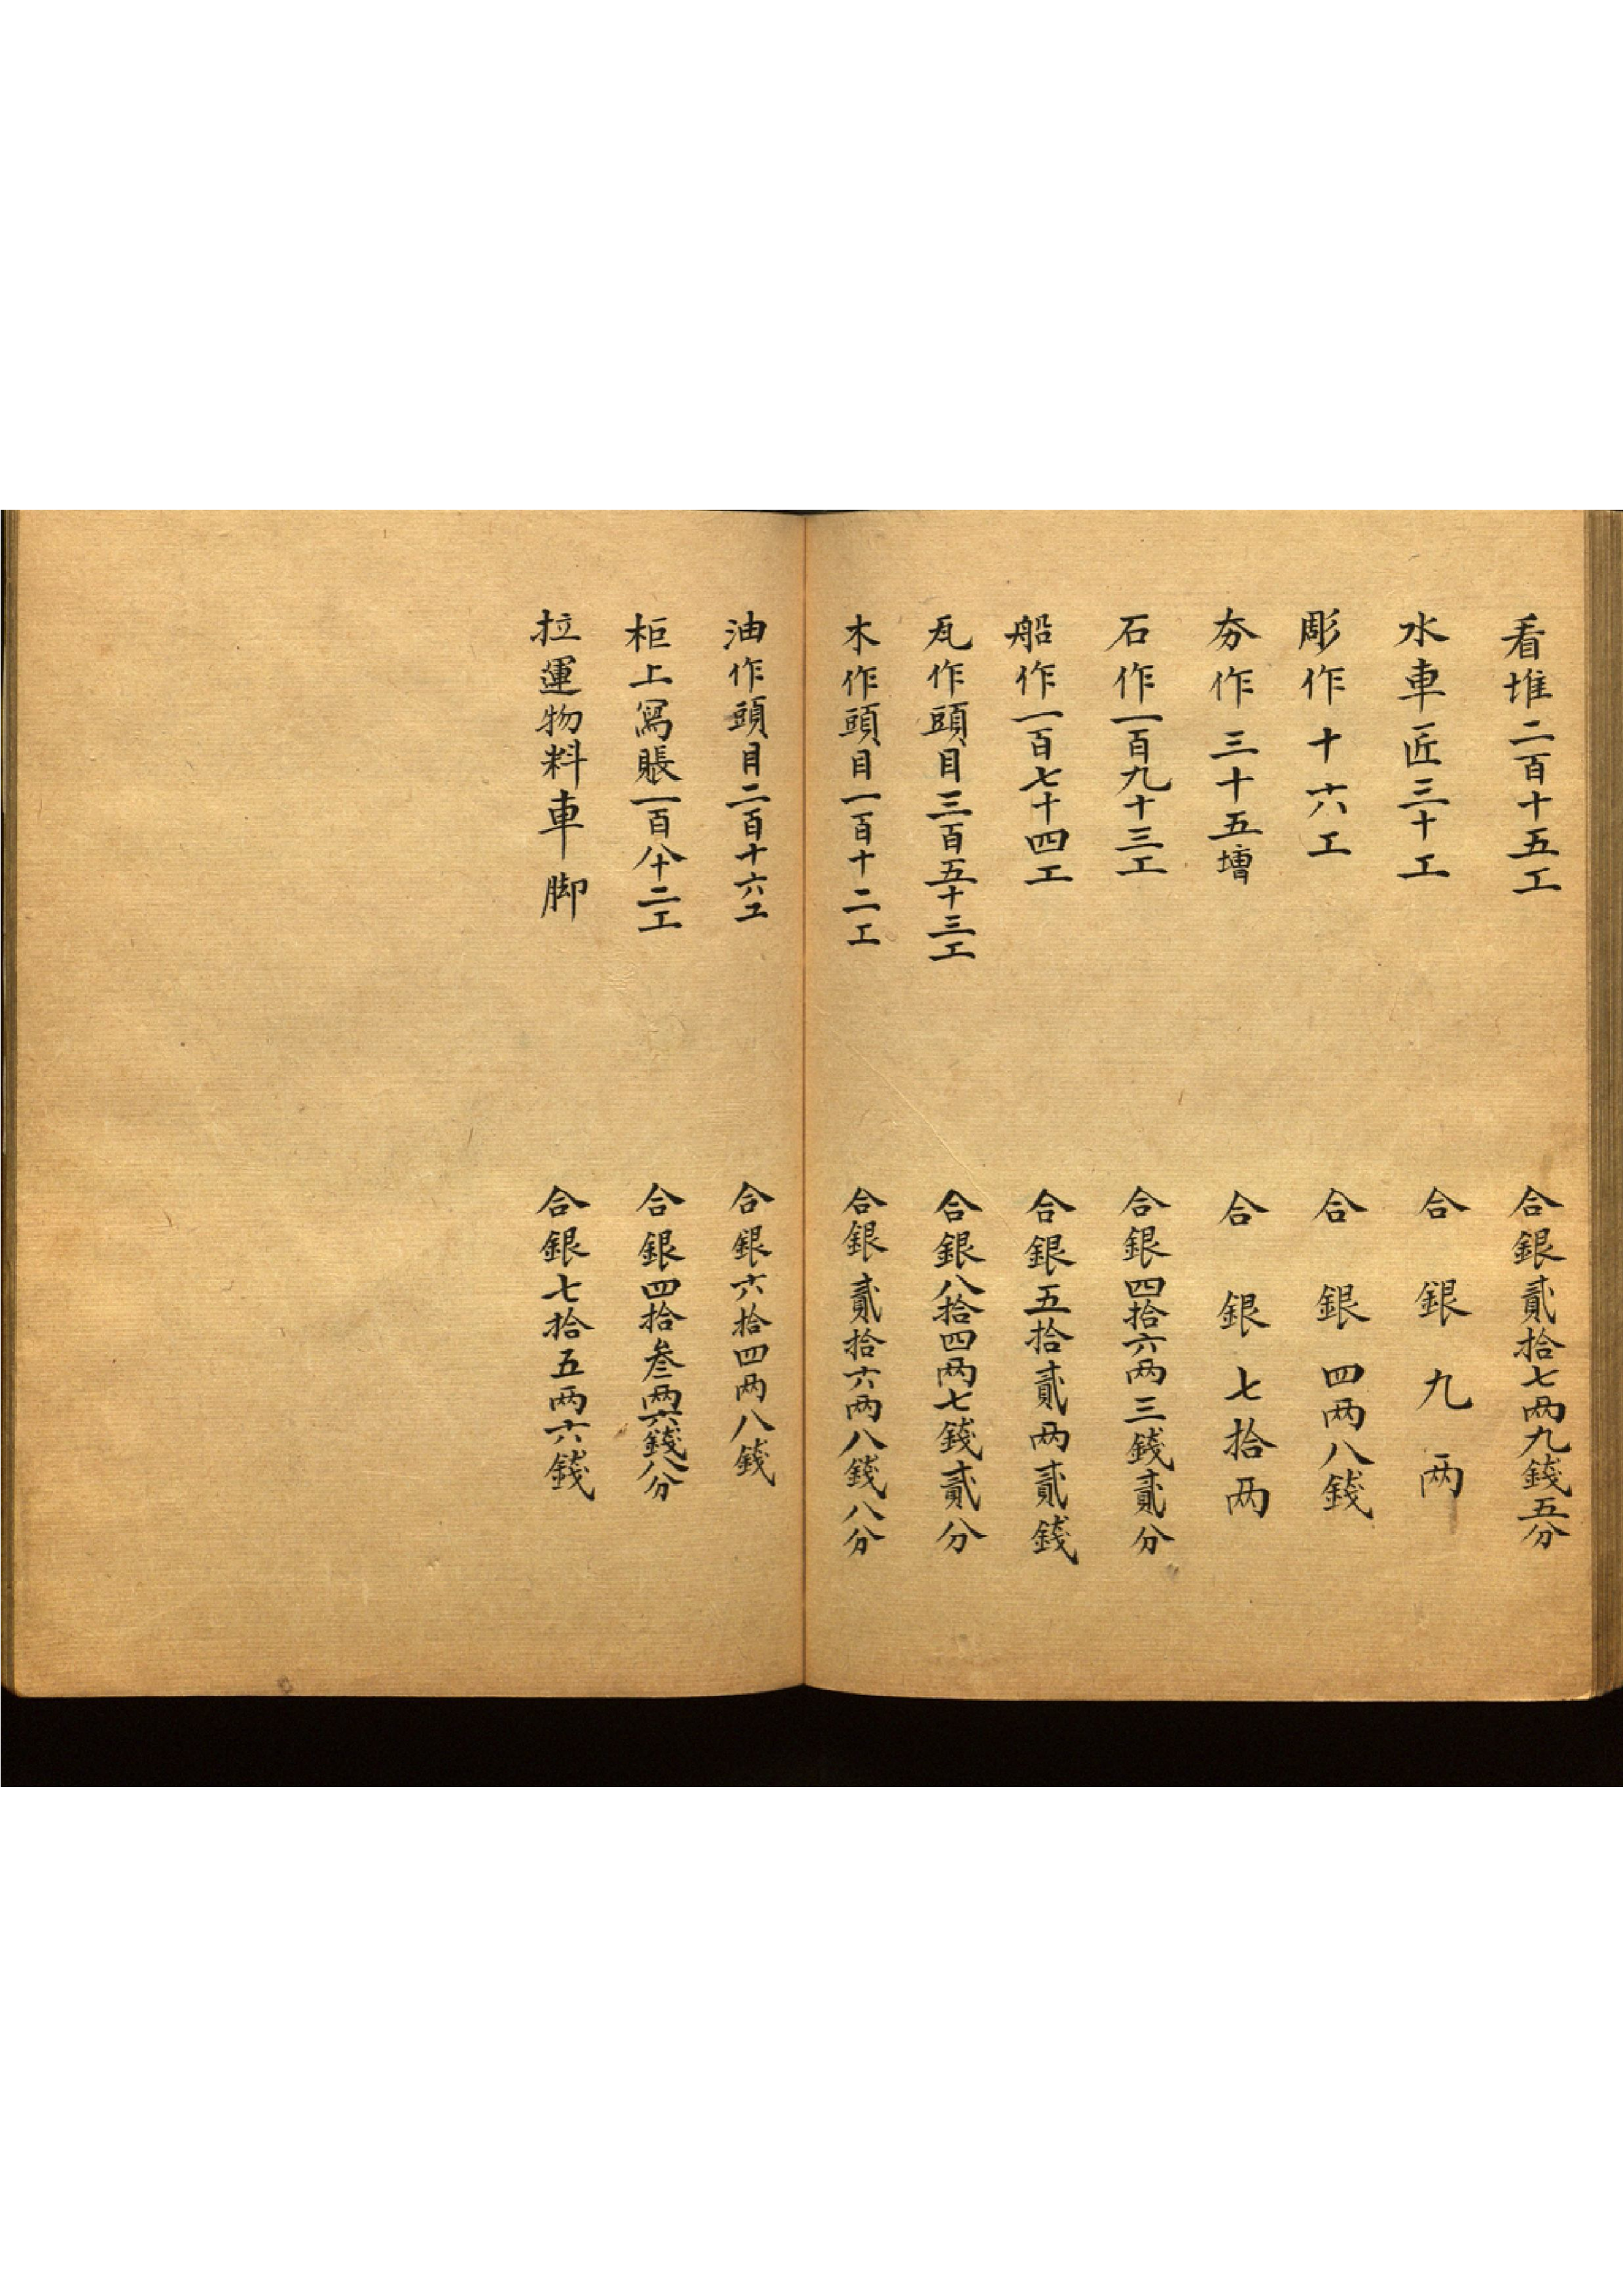 看堆二百十五工　合銀貳拾七两九錢五分
水車匠三十工　合銀九两
彫作十六工　合銀四两八錢
夯作三十五壇　合銀七拾两
石作一百九十三工　合銀四拾六两三錢貳分
船作一百七十四工　合銀五拾貳两貳錢
瓦作頭目三百五十三工　合銀八拾四两七錢貳分
木作頭目一百十二工　合銀貳拾六两八錢八分
油作頭目二百十六工　合銀六拾四两八錢
柜上寫賬一百八十二工　合銀四拾叁两六錢八分
拉運物料車脚　合銀七拾五两六錢